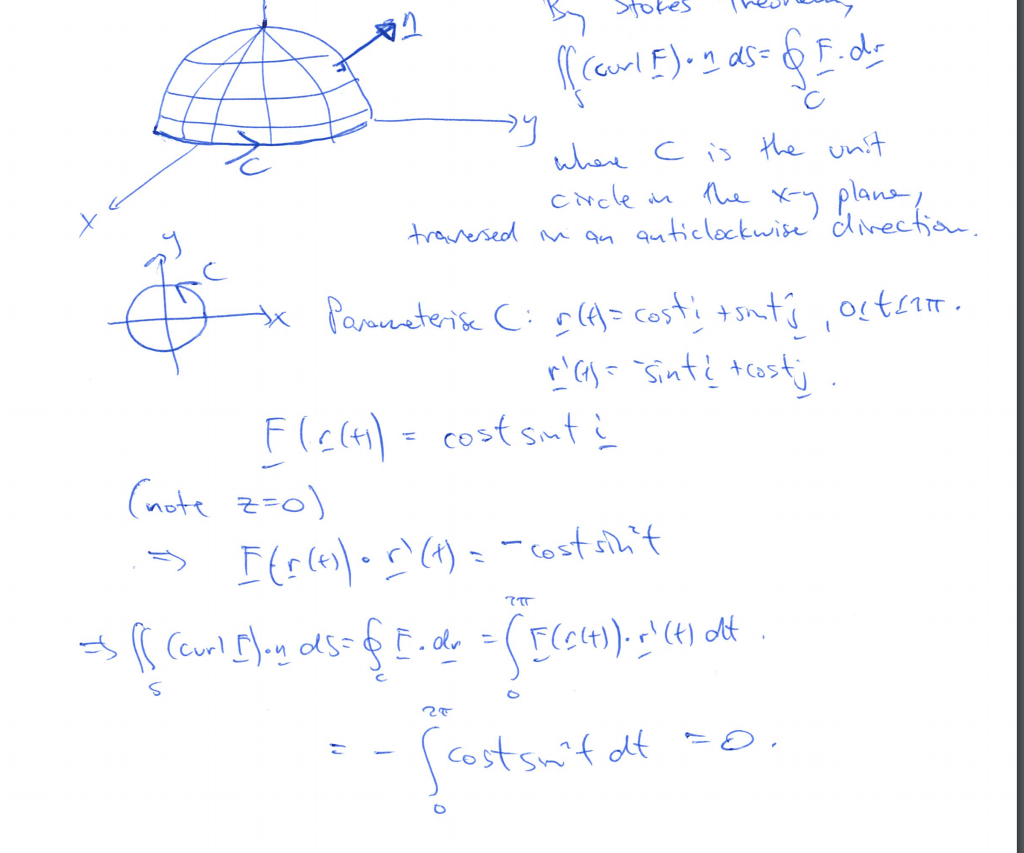 By Stokes Theorem,
n
∬_S (curl F)·n dS = ∮_C F·dr
y
C
where C is the unit
circle in the x-y plane,
x
traversed in an anticlockwise direction.
y
C
x
Parameterise C: r(t) = cost i + sint j, 0≤t≤2π.
r'(t) = -sint i + cost j.
F(r(t)) = cost sint i
(note z=0)
⇒ F(r(t))·r'(t) = -cost sin²t
⇒ ∬_S (curl F)·n dS = ∮_C F·dr = ∫_0^2π F(r(t))·r'(t) dt.
= - ∫_0^2π cost sin²t dt = 0.